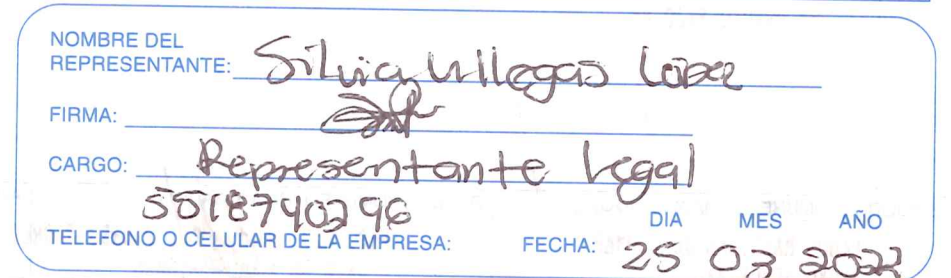 NOMBRE DEL
REPRESENTANTE: Silvia Villegas Lopez
FIRMA:
CARGO: Representante Legal
5518740296
TELEFONO O CELULAR DE LA EMPRESA:
FECHA: DIA MES AÑO
25 03 2022